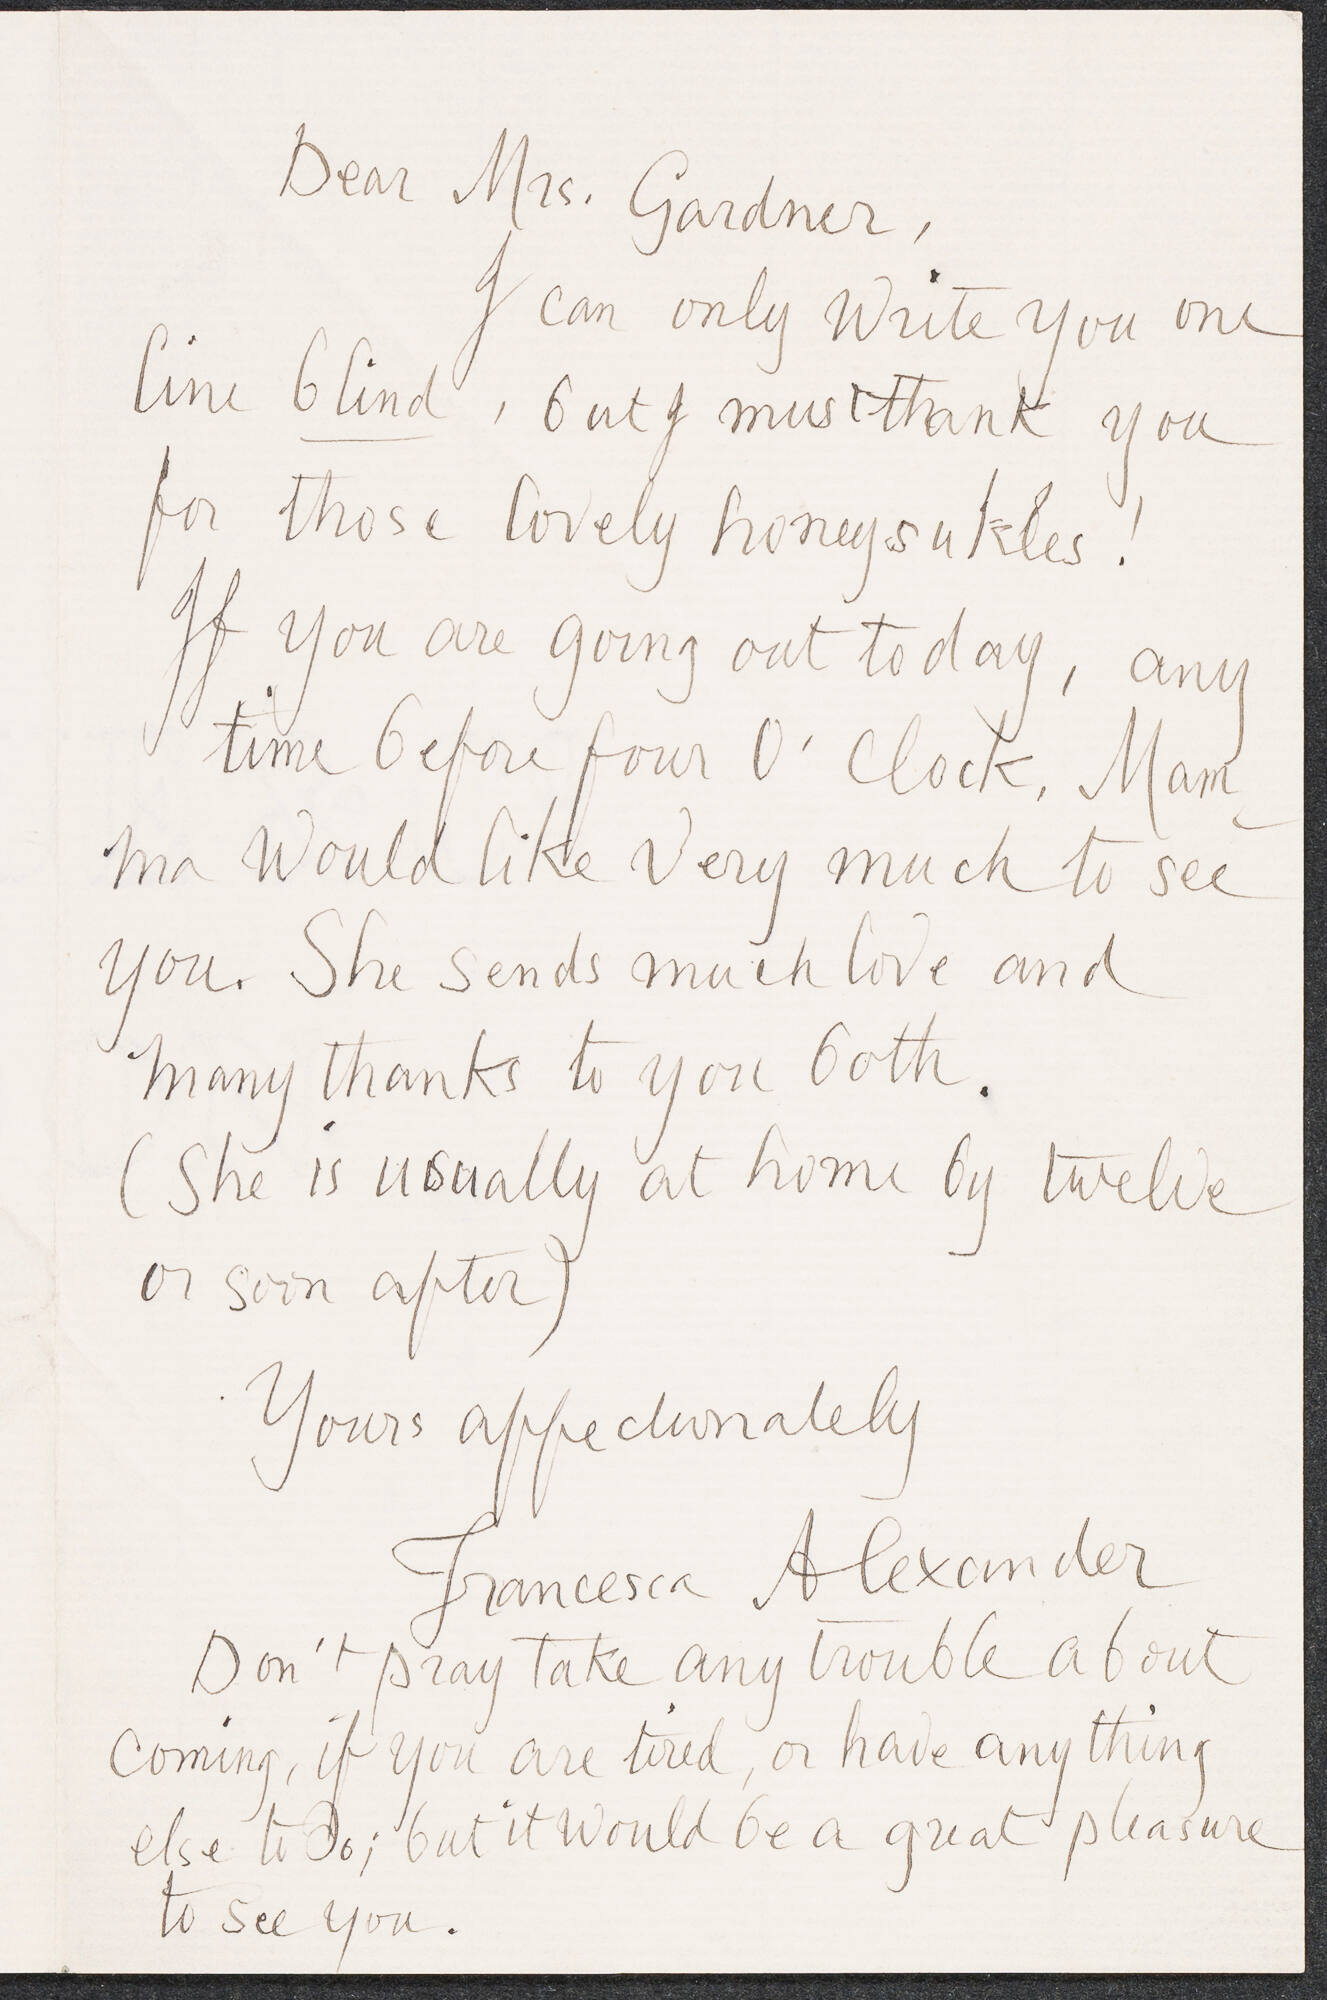 Dear Mrs. Gardner,
I can only write you one
line blind, but I must thank you
for those lovely honeysukles!
If you are going out today, any
time before four O'Clock, Mam-
ma would like very much to see
you. She sends much love and
many thanks to you both.
(She is usually at home by twelve
or soon after)
Yours affectionately
Francesca Alexander
Don't pray take any trouble about
coming, if you are tired, or have anything
else to do; but it would be a great pleasure
to see you.